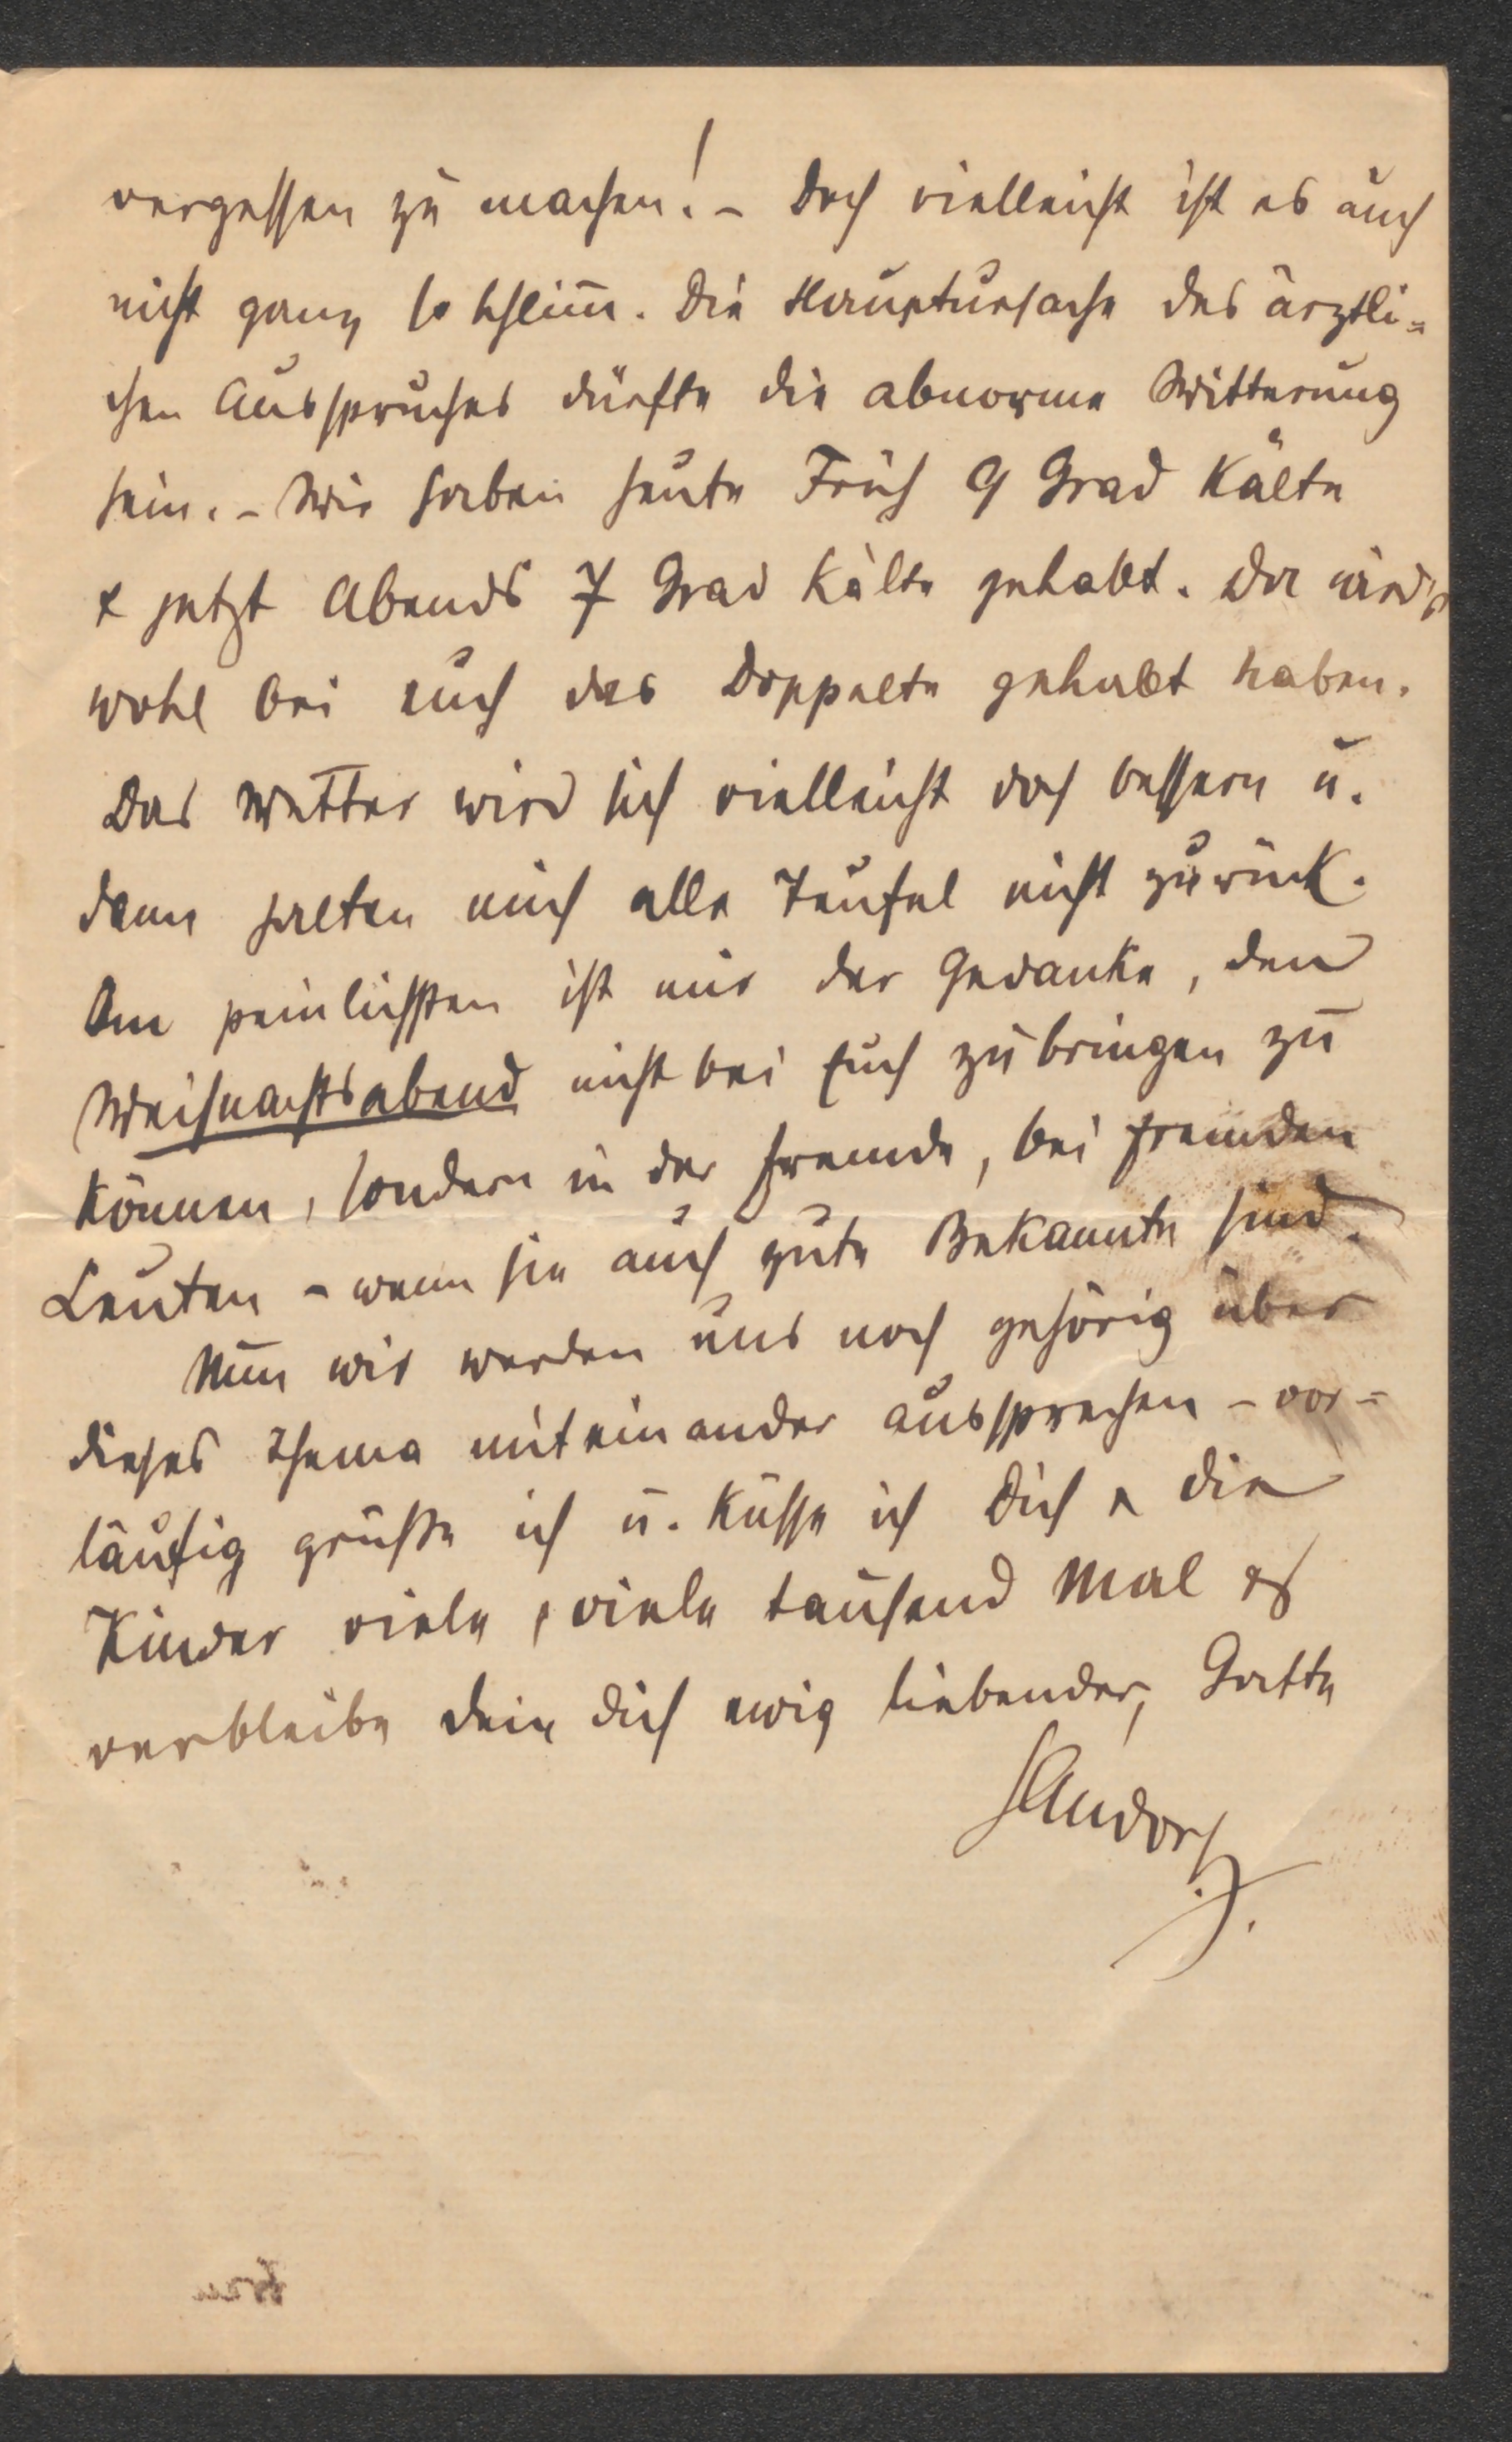 vergessen zu machen! – Doch vielleicht ist es auch
nicht ganz so schlim̅. Die Hauptursache des ärztli=
chen Ausspruches dürfte die abnorme Witterung
sein. – Wir haben heute Früh 9 Grad Kälte
& jetzt Abends 7 Grad Kälte gehabt. Da
wohl bei euch das Doppelte gehabt haben.
Das Wetter wird sich vielleicht doch bessern u.
dann halten mich alle Teufel nicht zurück.
Am peinlichsten ist mir der Gedanke, den
Weihnachtsabend nicht bei Euch zubringen zu
können, sondern in der Fremde, bei fremden
Leuten – wenn sie auch gute Bekannte sind.
Nun wir werden uns noch gehörig über
dieses Thema miteinander aussprechen – vor=
läufig grüße ich u. küsse ich Dich & die
Kinder viele, viele tausend Mal &
verbleibe Dein Dich ewig liebender, Gatte
Sandor